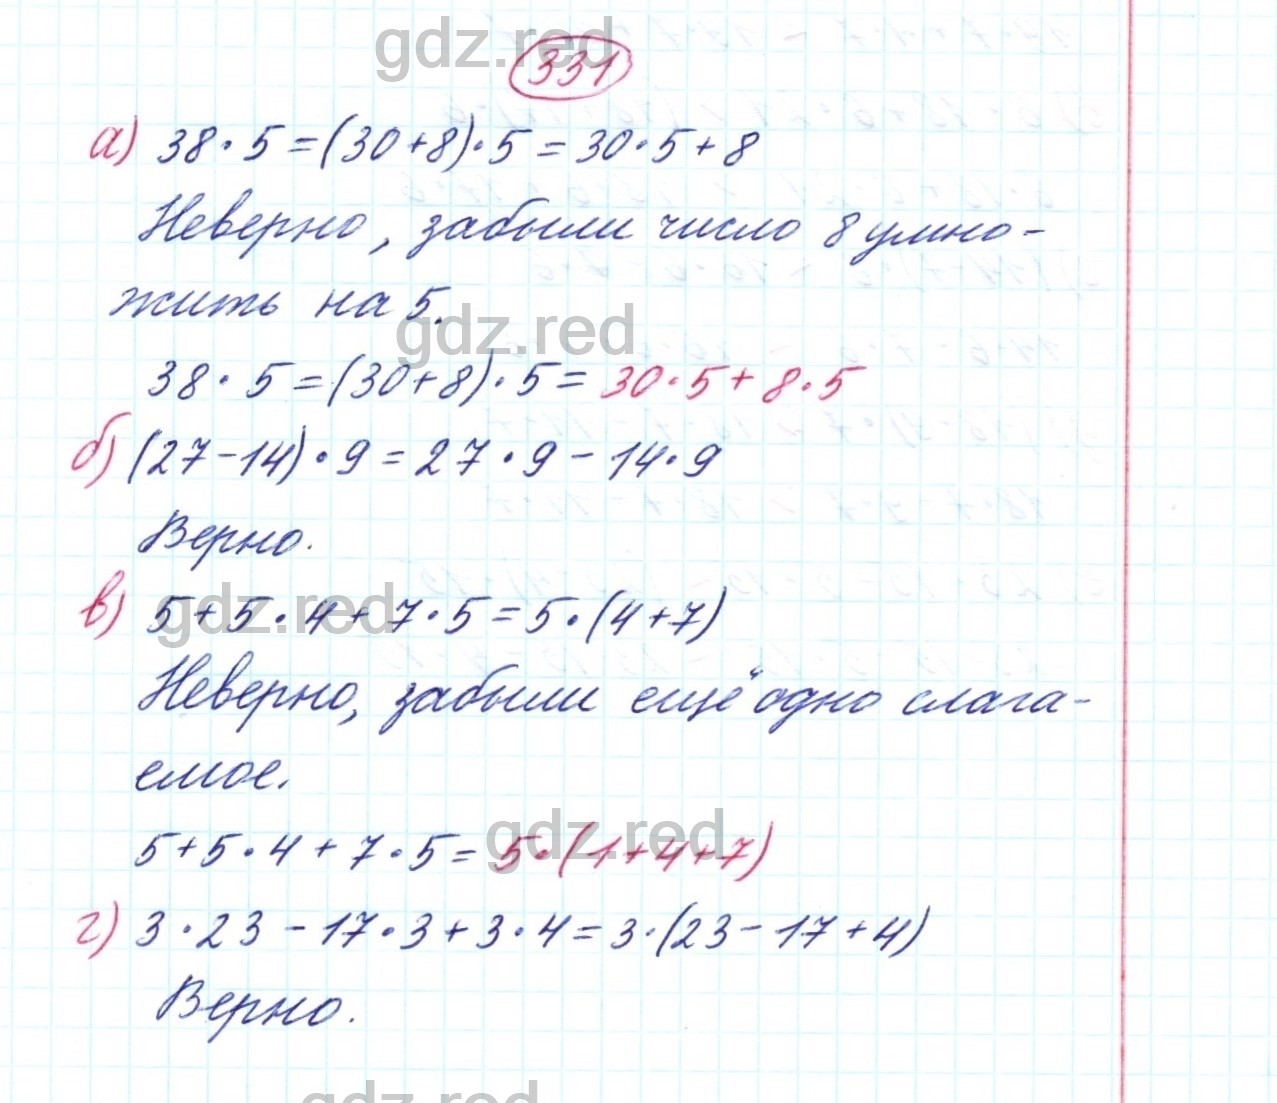 gdz.red
331
а) 38·5=(30+8)·5=30·5+8
Неверно, забыли число 8 умно-
жить на 5.
gdz.red
38·5=(30+8)·5=30·5+8·5
б) (27-14)·9=27·9-14·9
Верно.
gdz.red
в) 5+5·4+7·5=5·(4+7)
Неверно, забыли ещё одно слага-
емое.
gdz.red
5+5·4+7·5=5·(1+4+7)
г) 3·23-17·3+3·4=3·(23-17+4)
Верно.
gdz.red